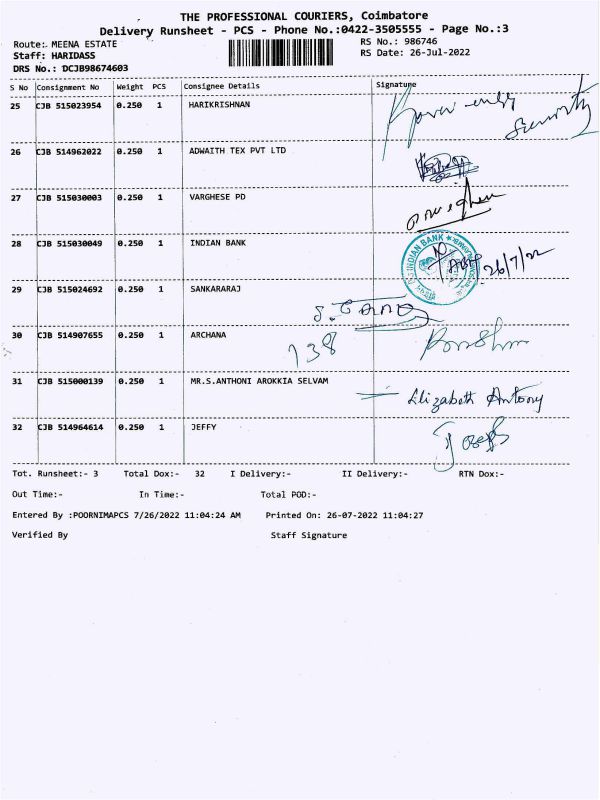 THE PROFESSIONAL COURIERS, Coimbatore
Delivery Runsheet - PCS - Phone No.:0422-3505555 - Page No.:3
Route: MEENA ESTATE
RS No.: 986746
Staff: HARIDASS
RS Date: 26-Jul-2022
DRS No.: DCJB98674603
S No Consignment No Weight PCS Consignee Details Signature
25 CJB 515023954 0.250 1 HARIKRISHNAN
Security
26 CJB 514962022 0.250 1 ADWAITH TEX PVT LTD
27 CJB 515030003 0.250 1 VARGHESE PD
28 CJB 515030049 0.250 1 INDIAN BANK
INDIAN BANK
26/7/22
29 CJB 515024692 0.250 1 SANKARARAJ
30 CJB 514907655 0.250 1 ARCHANA
738
31 CJB 515000139 0.250 1 MR.S.ANTHONI AROKKIA SELVAM
Elizabeth Antony
32 CJB 514964614 0.250 1 JEFFY
Joseph
Tot. Runsheet:- 3 Total Dox:- 32 I Delivery:- II Delivery:- RTN Dox:-
Out Time:- In Time:- Total POD:-
Entered By :POORNIMAPCS 7/26/2022 11:04:24 AM Printed On: 26-07-2022 11:04:27
Verified By Staff Signature